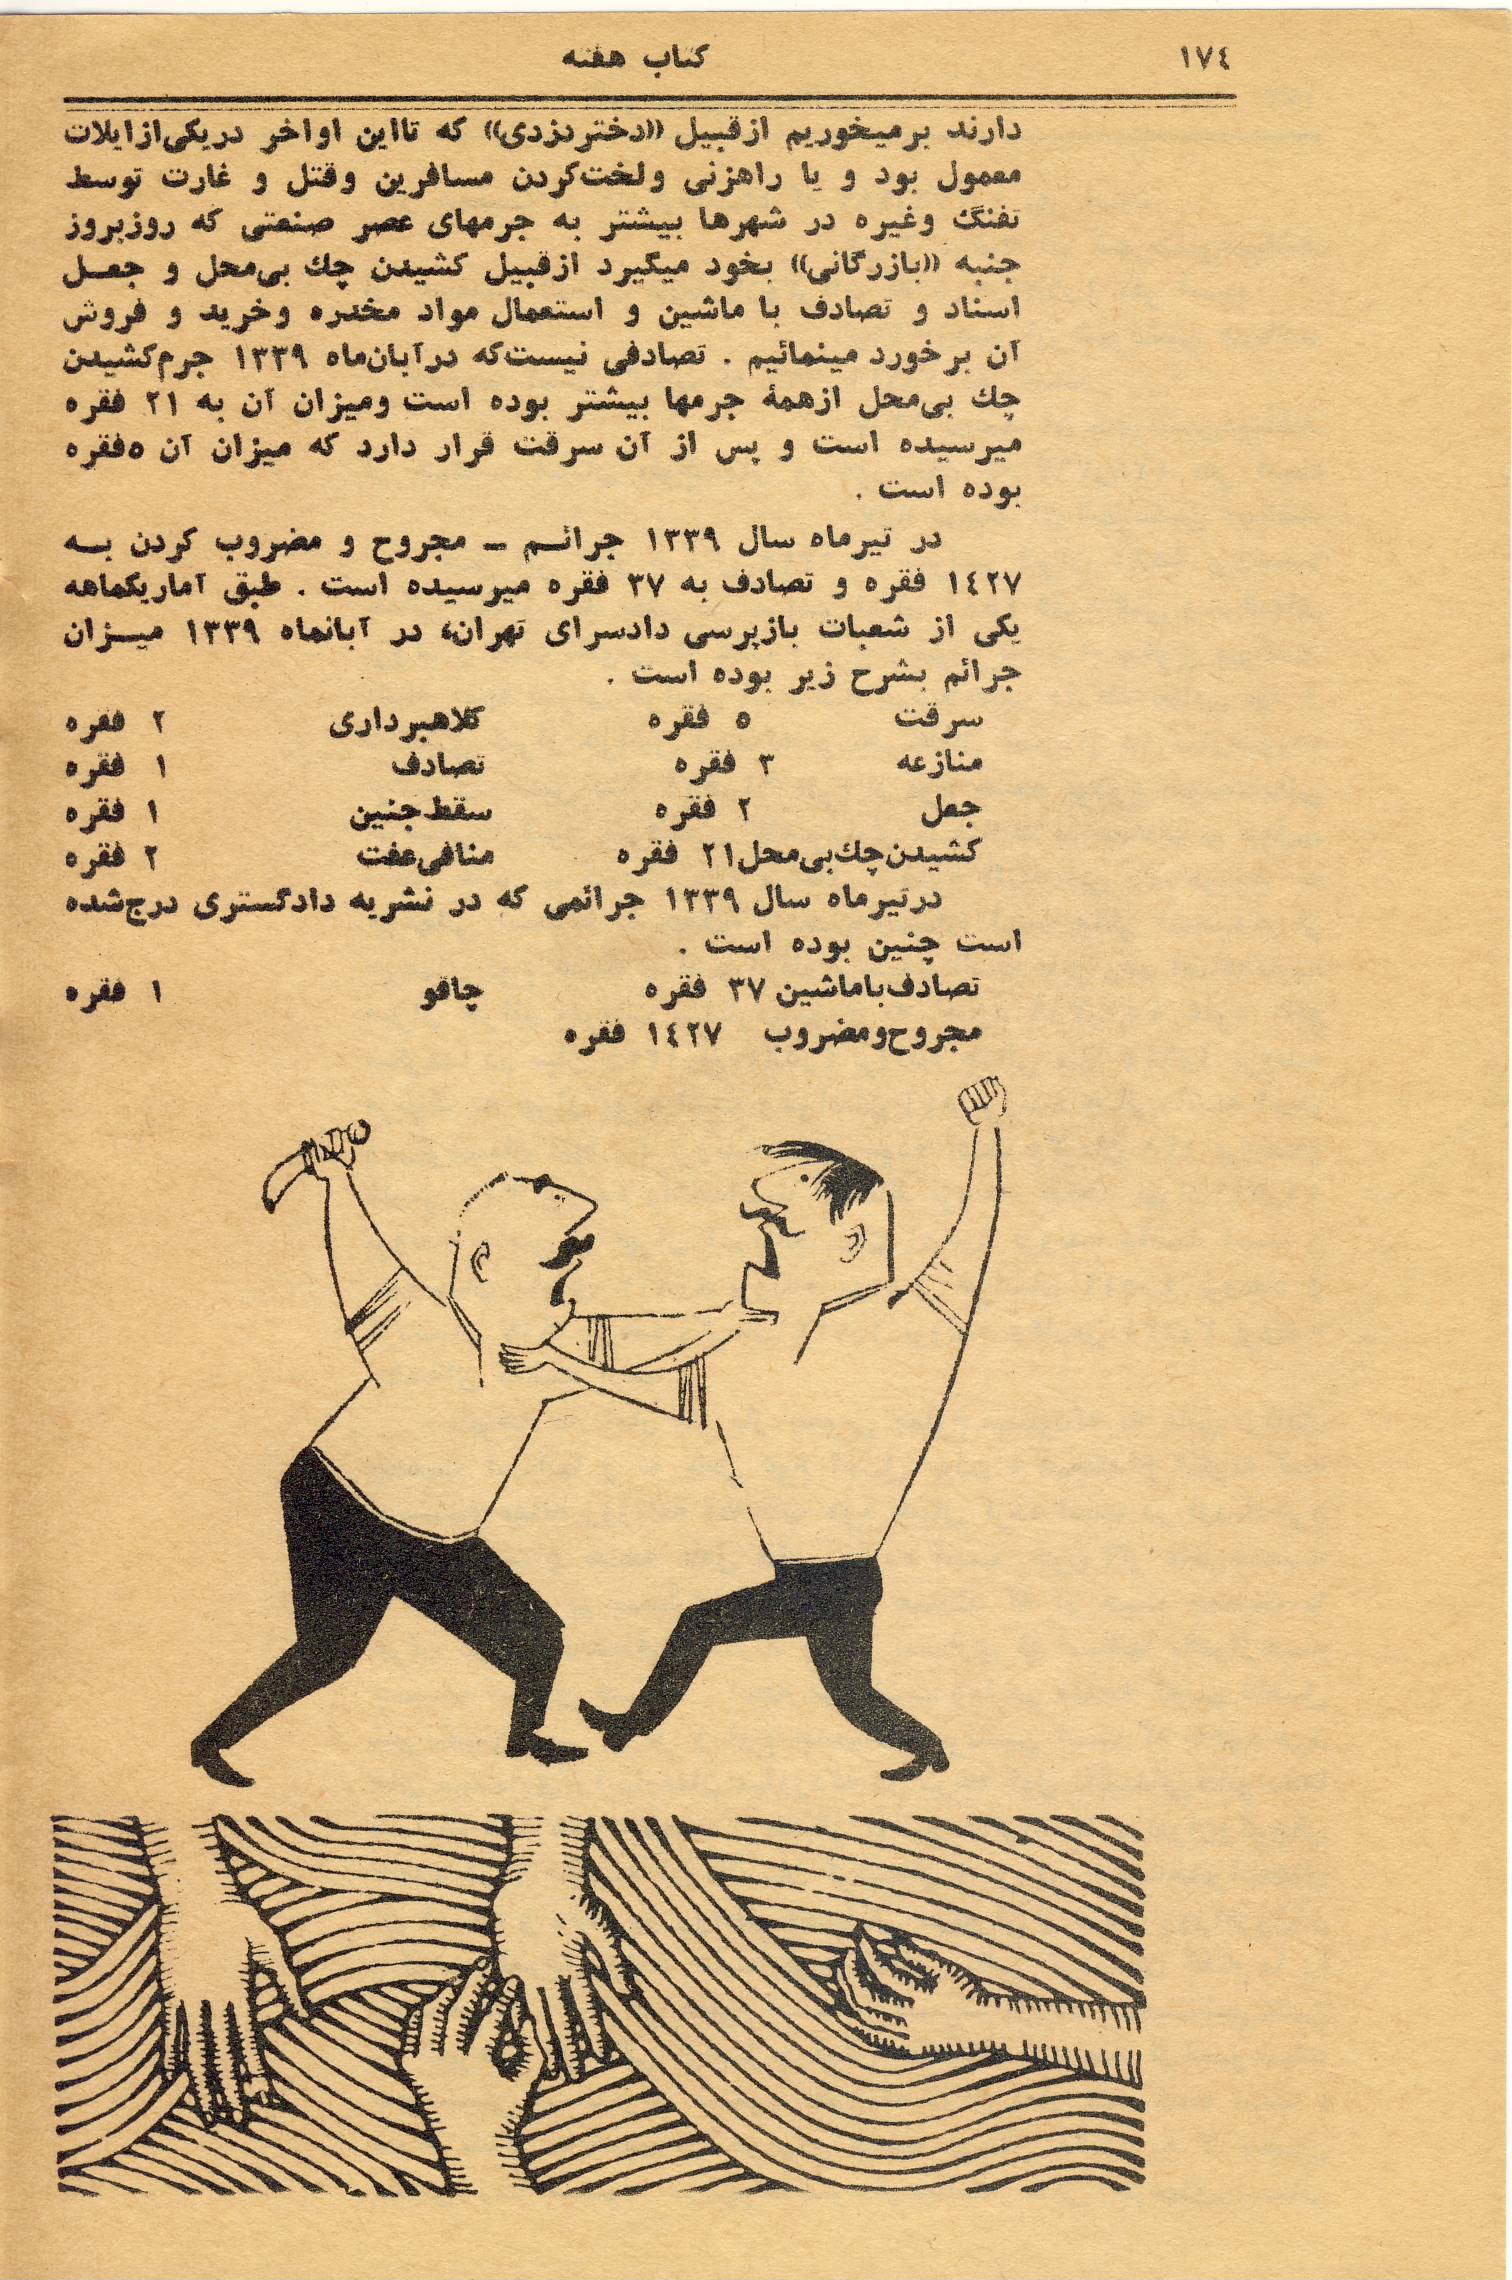 ١٧٤ کتاب هفته
دارند برمیخوریم ازقبیل ((دختردزدی)) که تااین اواخر دریکی‌ازایلات
معمول بود و یا راهزنی ولخت‌کردن مسافرین وقتل و غارت توسط
تفنگ وغیره در شهرها بیشتر به جرمهای عصر صنعتی که روزبروز
جنبه ((بازرگانی)) بخود میگیرد ازقبیل کشیدن چك بی‌محل و جعـل
اسناد و تصادف با ماشین و استعمال مواد مخدره وخرید و فروش
آن برخورد مینمائیم . تصادفی نیست‌که درآبان‌ماه ١٣٣٩ جرم‌کشیدن
چك بی‌محل ازهمهٔ جرمها بیشتر بوده است ومیزان آن به ٢١ فقره
میرسیده است و پس از آن سرقت قرار دارد که میزان آن ٥فقره
بوده است .
در تیرماه سال ١٣٣٩ جرائـم ـ مجروح و مضروب کردن بـه
١٤٢٧ فقره و تصادف به ٣٧ فقره میرسیده است . طبق آماریکماهه
یکی از شعبات بازپرسی دادسرای تهران، در آبانماه ١٣٣٩ میـزان
جرائم بشرح زیر بوده است .
سرقت ٥ فقره کلاهبرداری ٢ فقره
منازعه ٣ فقره تصادف ١ فقره
جعل ٢ فقره سقط‌جنین ١ فقره
کشیدن‌چك‌بی‌محل٢١ فقره منافی‌عفت ٢ فقره
درتیرماه سال ١٣٣٩ جرائمی که در نشریه دادگستری درج‌شده
است چنین بوده است .
تصادف‌باماشین ٣٧ فقره چاقو ١ فقره
مجروح‌ومضروب ١٤٢٧ فقره